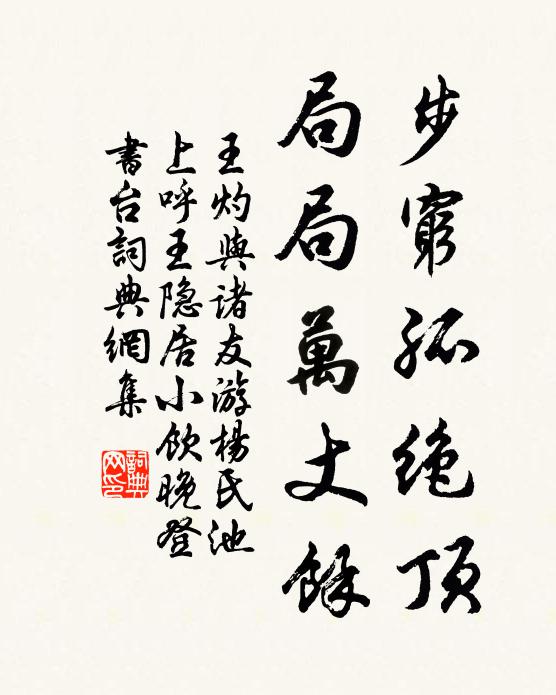 步窮孤絶頂
局局萬丈餘
王灼與諸友游楊氏池
上呼王隐居小飲晚登
書台詞典網集
詞典网印